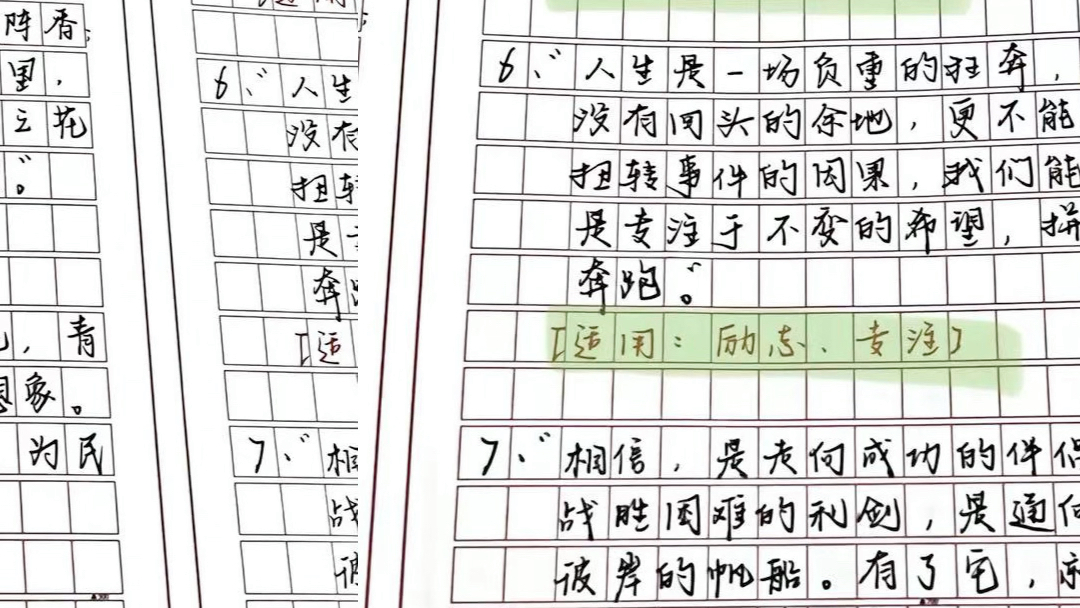 阵香
里，
立花
”。
，青
想象。
为民
6、“人生
没有
扭转
是专
奔跑
[适
7、“相
战
彼
6、“人生是一场负重的狂奔，
没有回头的余地，更不能
扭转事件的因果，我们能
是专注于不变的希望，拼
奔跑”。
[适用：励志、专注]
7、“相信，是走向成功的伴侣
战胜困难的利剑，是通向
彼岸的帆船。有了它，就